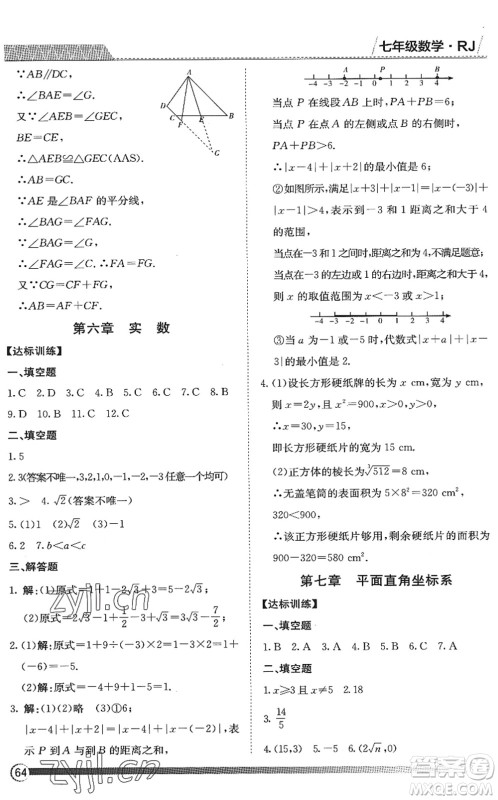 七年级数学·RJ
∵AB∥DC,
∴∠BAE=∠G.
又∵∠AEB=∠GEC,
BE=CE,
∴△AEB≌△GEC(AAS).
∴AB=GC.
∵AE 是∠BAF的平分线,
∴∠BAG=∠FAG.
∵∠BAG=∠G,
∴∠FAG=∠G.
∴FA=FG.
又∵CG=CF+FG,
∴AB=AF+CF.
第六章 实 数
【达标训练】
一、填空题
1.C 2.D 3.B 4.C 5.C 6.C 7.C 8.B
9.D 10.C 11.B 12.B
二、填空题
1.5
2.3(答案不唯一,3,2,1,0,-1,-2,-3任意一个均可)
3.> 4.√2(答案不唯一)
5.(1)1 (2)√5
6.2 7.b<a<c
三、解答题
(2)原式=2√3-1-√3-5/2=√3-7/2
2.(1)解:原式=1+9÷(-3)×2=1+(-3)×2=1+
(-6)=-5.
3.解:(1)(2)略 (3)①6;
|x-4|+|x+2|=|x-4|+|x-(-2)|表
示 P 到 A 与到 B 的距离之和,
64
A D C F E B G
-4 -3 -2 -1 0 1 2 3 4
当点 P 在线段AB 上时,PA+PB=6;
当点 P 在点 A 的左侧或点 B 的右侧时,
PA+PB>6,
∴|x-4|+|x+2|的最小值是 6;
②如图所示,满足|x+3|+|x-1|=|x-(-3)|+
|x-1|,表示到-3 和 1 距离之和大于 4
的范围,
当点在-3和1中间时,距离之和为4,不满足题意;
当点在-3 的左边或 1 的右边时,距离之和大于 4,
则 x 的取值范围为x<-3或x>1.
-4 -3 -2 -1 0 1 2 3 4
③当 a 为-1 或-5 时,代数式|x+a|+|x-
3|的最小值是 2.
4.(1)设长方形硬纸牌的长为 x cm,宽为 y cm,
xy=900,且 x=y,∴x²=900,x>0,
∴x=30,y=15,
即长方形硬纸片的长为30 cm.
(2)正方体的棱长为∛512=8 cm,
∴无盖笔筒的表面积为 5×8²=320 cm²,
320<900,
∴该正方体硬纸片够用,剩余硬纸片面积
=900-320=580 cm².
第七章 平面直角坐标系
【达标训练】
一、填空题
1.B 2.A 3.B 4.C 5.C 6.C 7.A
二、填空题
1.x≥3且x≠5 2.18
3.14/5
4.(15,3) 5.(√2,0) 6.(2√n,0)
zyjl.cn
zyjl.cn
答案圈
MXQE.COM